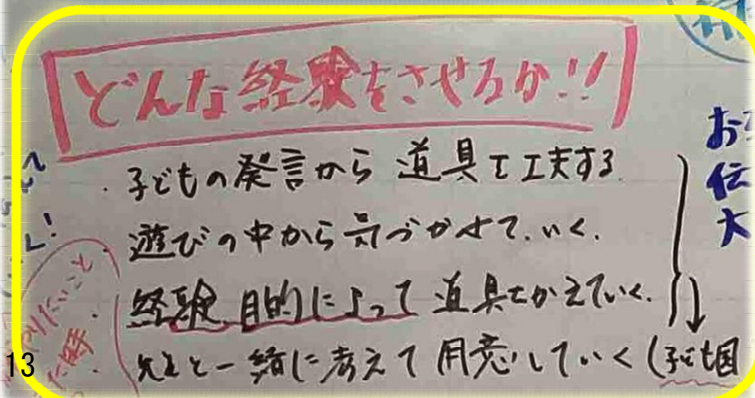 どんな経験をさせるか!!
・子どもの発言から 道具を工夫する
・遊びの中から気づかせて、いく.
経験、目的によって 道具をかえていく.
と一緒に考えて 用意していく(子ども
お
伝
大
13